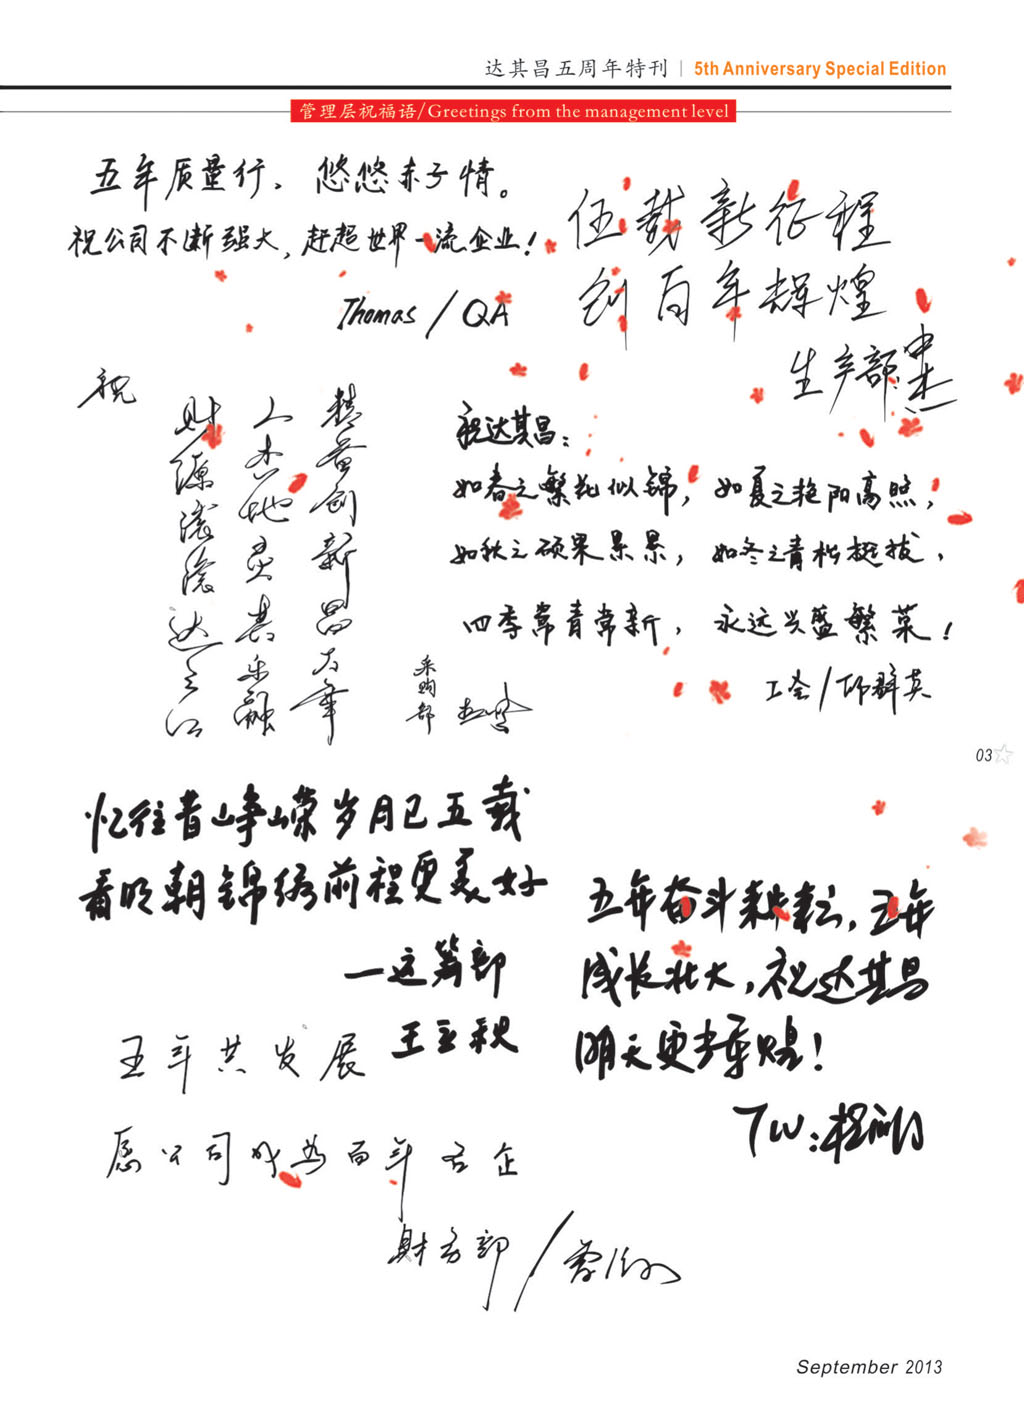 达其昌五周年特刊 | 5th Anniversary Special Edition
管理层祝福语/Greetings from the management level
五年质量行、悠悠赤子情。
祝公司不断强大,赶超世界一流企业!
Thomas / QA
伍载新征程
创百年辉煌
生产部:
祝
精益创新昌万年
人杰地灵其乐融
财源滚滚达三江
采购部
祝达其昌:
如春之繁花似锦,如夏之艳阳高照;
如秋之硕果累累,如冬之青松挺拔,
四季常青常新,永远兴盛繁荣!
工艺/邱群英
03
忆往昔峥嵘岁月已五载
看明朝锦绣前程更美好
—运筹部
王立秋
五年奋斗耕耘,五年
成长壮大,祝达其昌
明天更加辉煌!
TW:程
五年共发展
愿公司成为百年名企
财务部/
September 2013